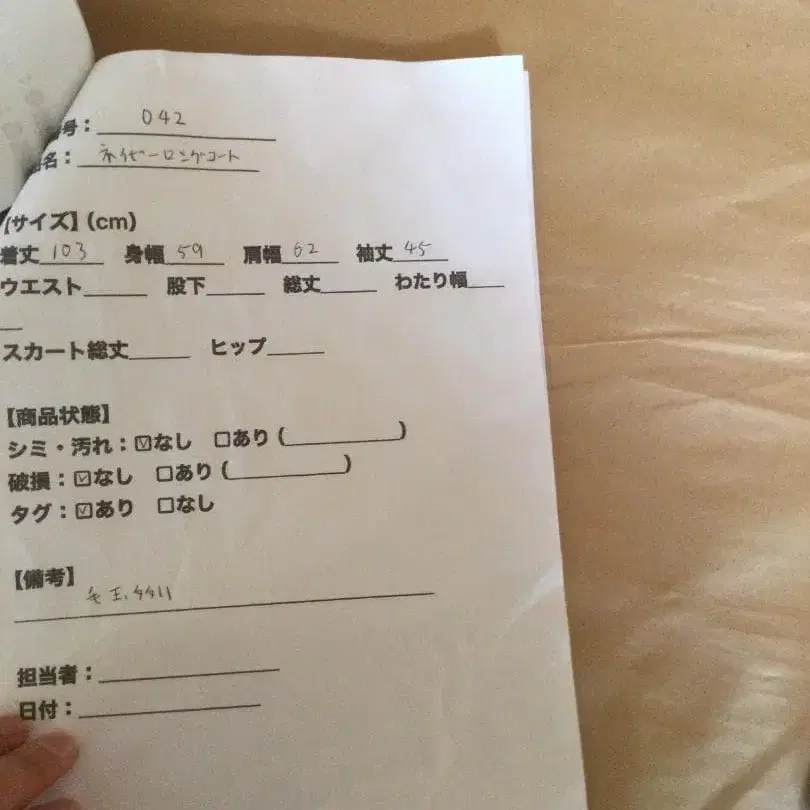 号： 042
名： ネイビーロングコート
【サイズ】(cm)
着丈 103 身幅 59 肩幅 62 袖丈 45
ウエスト______ 股下______ 総丈______ わたり幅____
__
スカート総丈______ ヒップ______
【商品状態】
シミ・汚れ：☑なし □あり (____________)
破損：☑なし □あり (____________)
タグ：☑あり □なし
【備考】
毛玉
担当者：
日付：